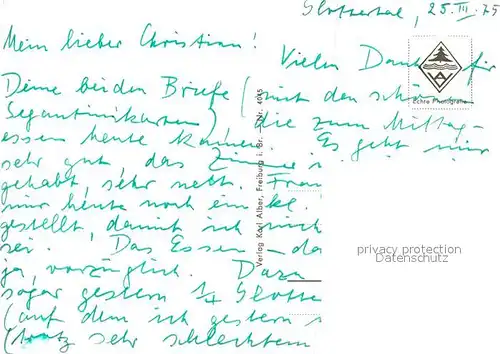 Glottertal, 25.III.75
Mein lieber Christian! Vielen Dank für
Deine beiden Briefe (mit den schönen
Segantinikarten) die zum Mittag-
essen heute kamen. Es geht mir
sehr gut das Zimmer
gehabt, sehr nett. Frau
mir heute noch ein kl.
gestellt, damit ich nich
sei. Das Essen – da
ja, vorzüglich. Dazu
sogar gestern 1/4 Glotte
(auf dem ich gestern
(trotz sehr schlechtem
Echte Photografie
Verlag Karl Alber, Freiburg i. Br. Nr. 4045
privacy protection
Datenschutz